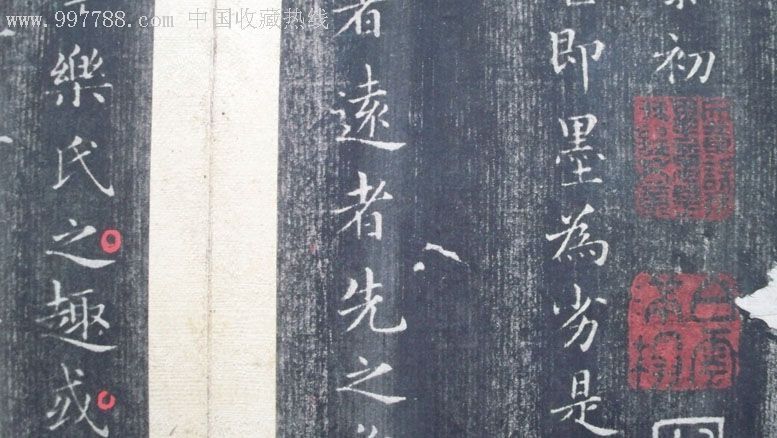 www.997788.com 中国收藏热线
初
即墨為劣是
者遠者先之
樂氏之趣或